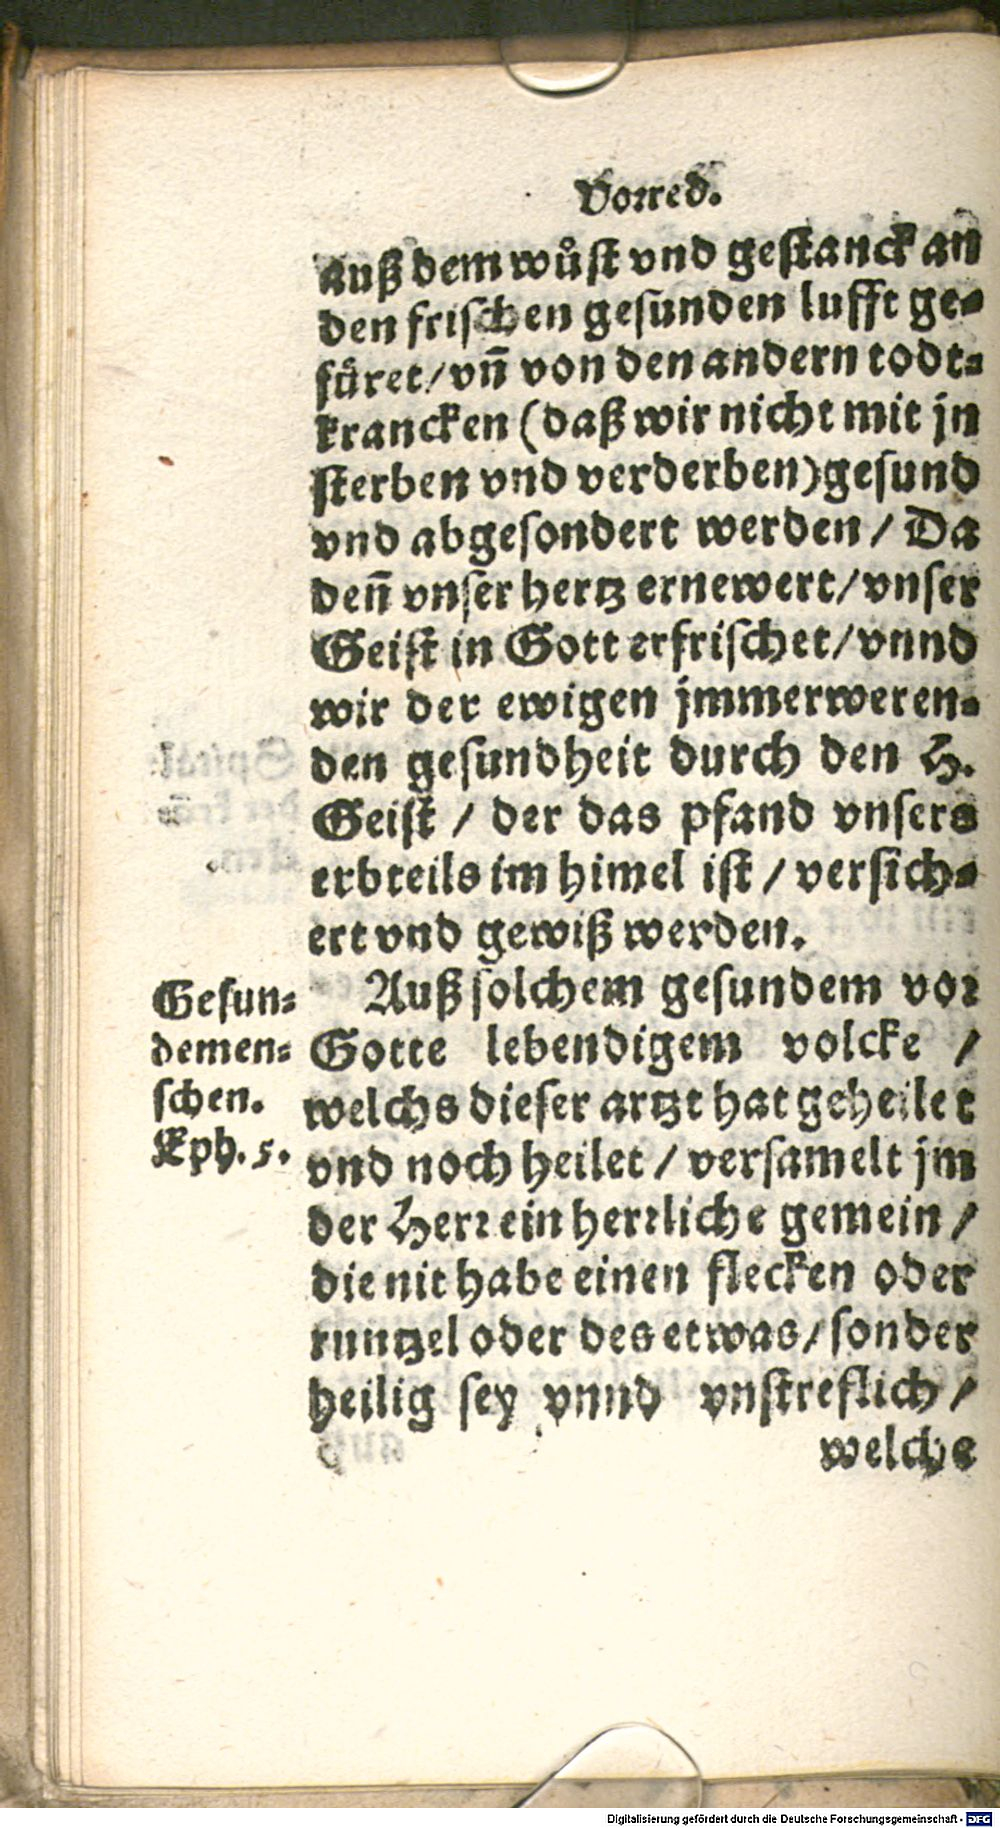 Vorred.
auß dem wůst vnd gestanck an
den frischen gesunden lufft ge-
füret/vn̄ von den andern todt-
krancken (daß wir nicht mit jn
sterben vnd verderben) gesund
vnd abgesondert werden / Da
den̄ vnser hertz ernewert/vnser
Geist in Gott erfrischet/vnnd
wir der ewigen jmmerweren-
den gesundheit durch den H.
Geist / der das pfand vnsers
erbteils im himel ist / versich-
ert vnd gewiß werden.
Auß solchem gesundem vor
Gotte lebendigem volcke /
welchs dieser artzt hat geheilet
vnd noch heilet / versamelt jm
der Herr ein herrliche gemein /
die nit habe einen flecken oder
runtzel oder des etwas/sonder
heilig sey vnnd vnstreflich /
welche
Gesun-
demen-
schen.
Eph. 5.
Digitalisierung gefördert durch die Deutsche Forschungsgemeinschaft - DFG